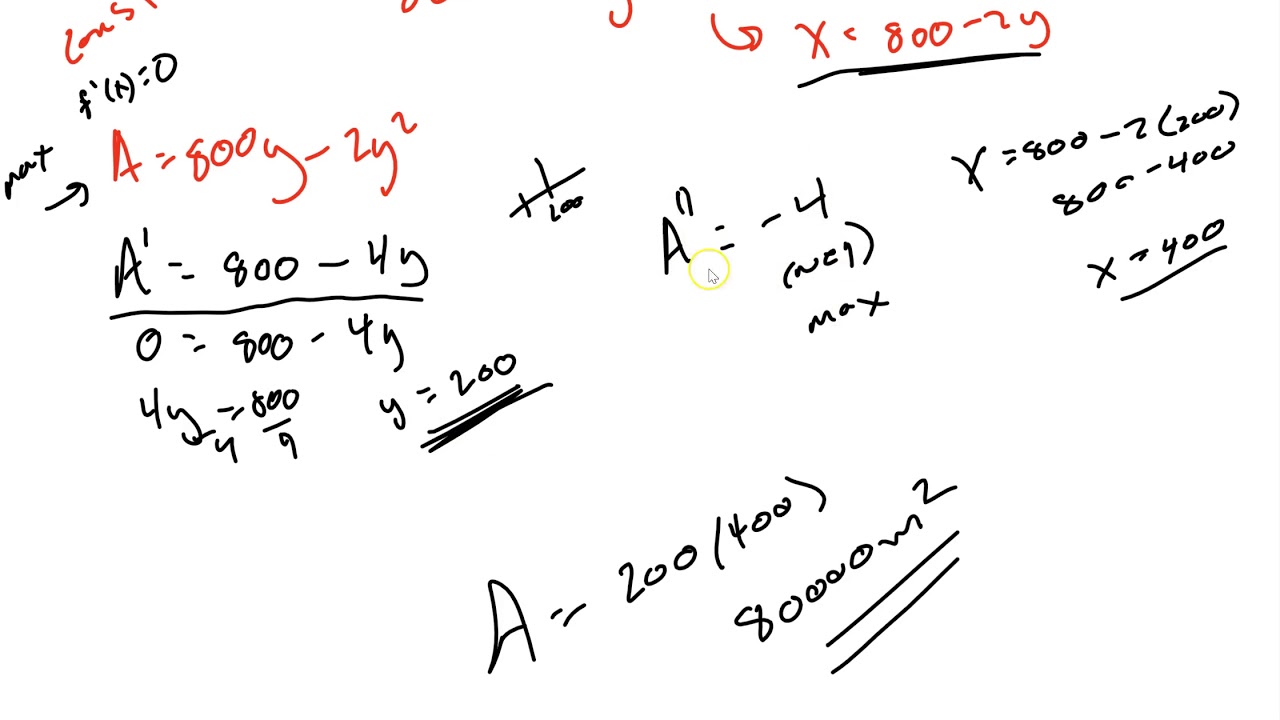 x = 800 - 2y
f'(x) = 0
A = 800y - 2y²
A' = 800 - 4y
0 = 800 - 4y
4y = 800
4 9
y = 200
200
A'' = -4
(neg)
max
x = 800 - 2(200)
800 - 400
x = 400
A = 200(400)
80000m²